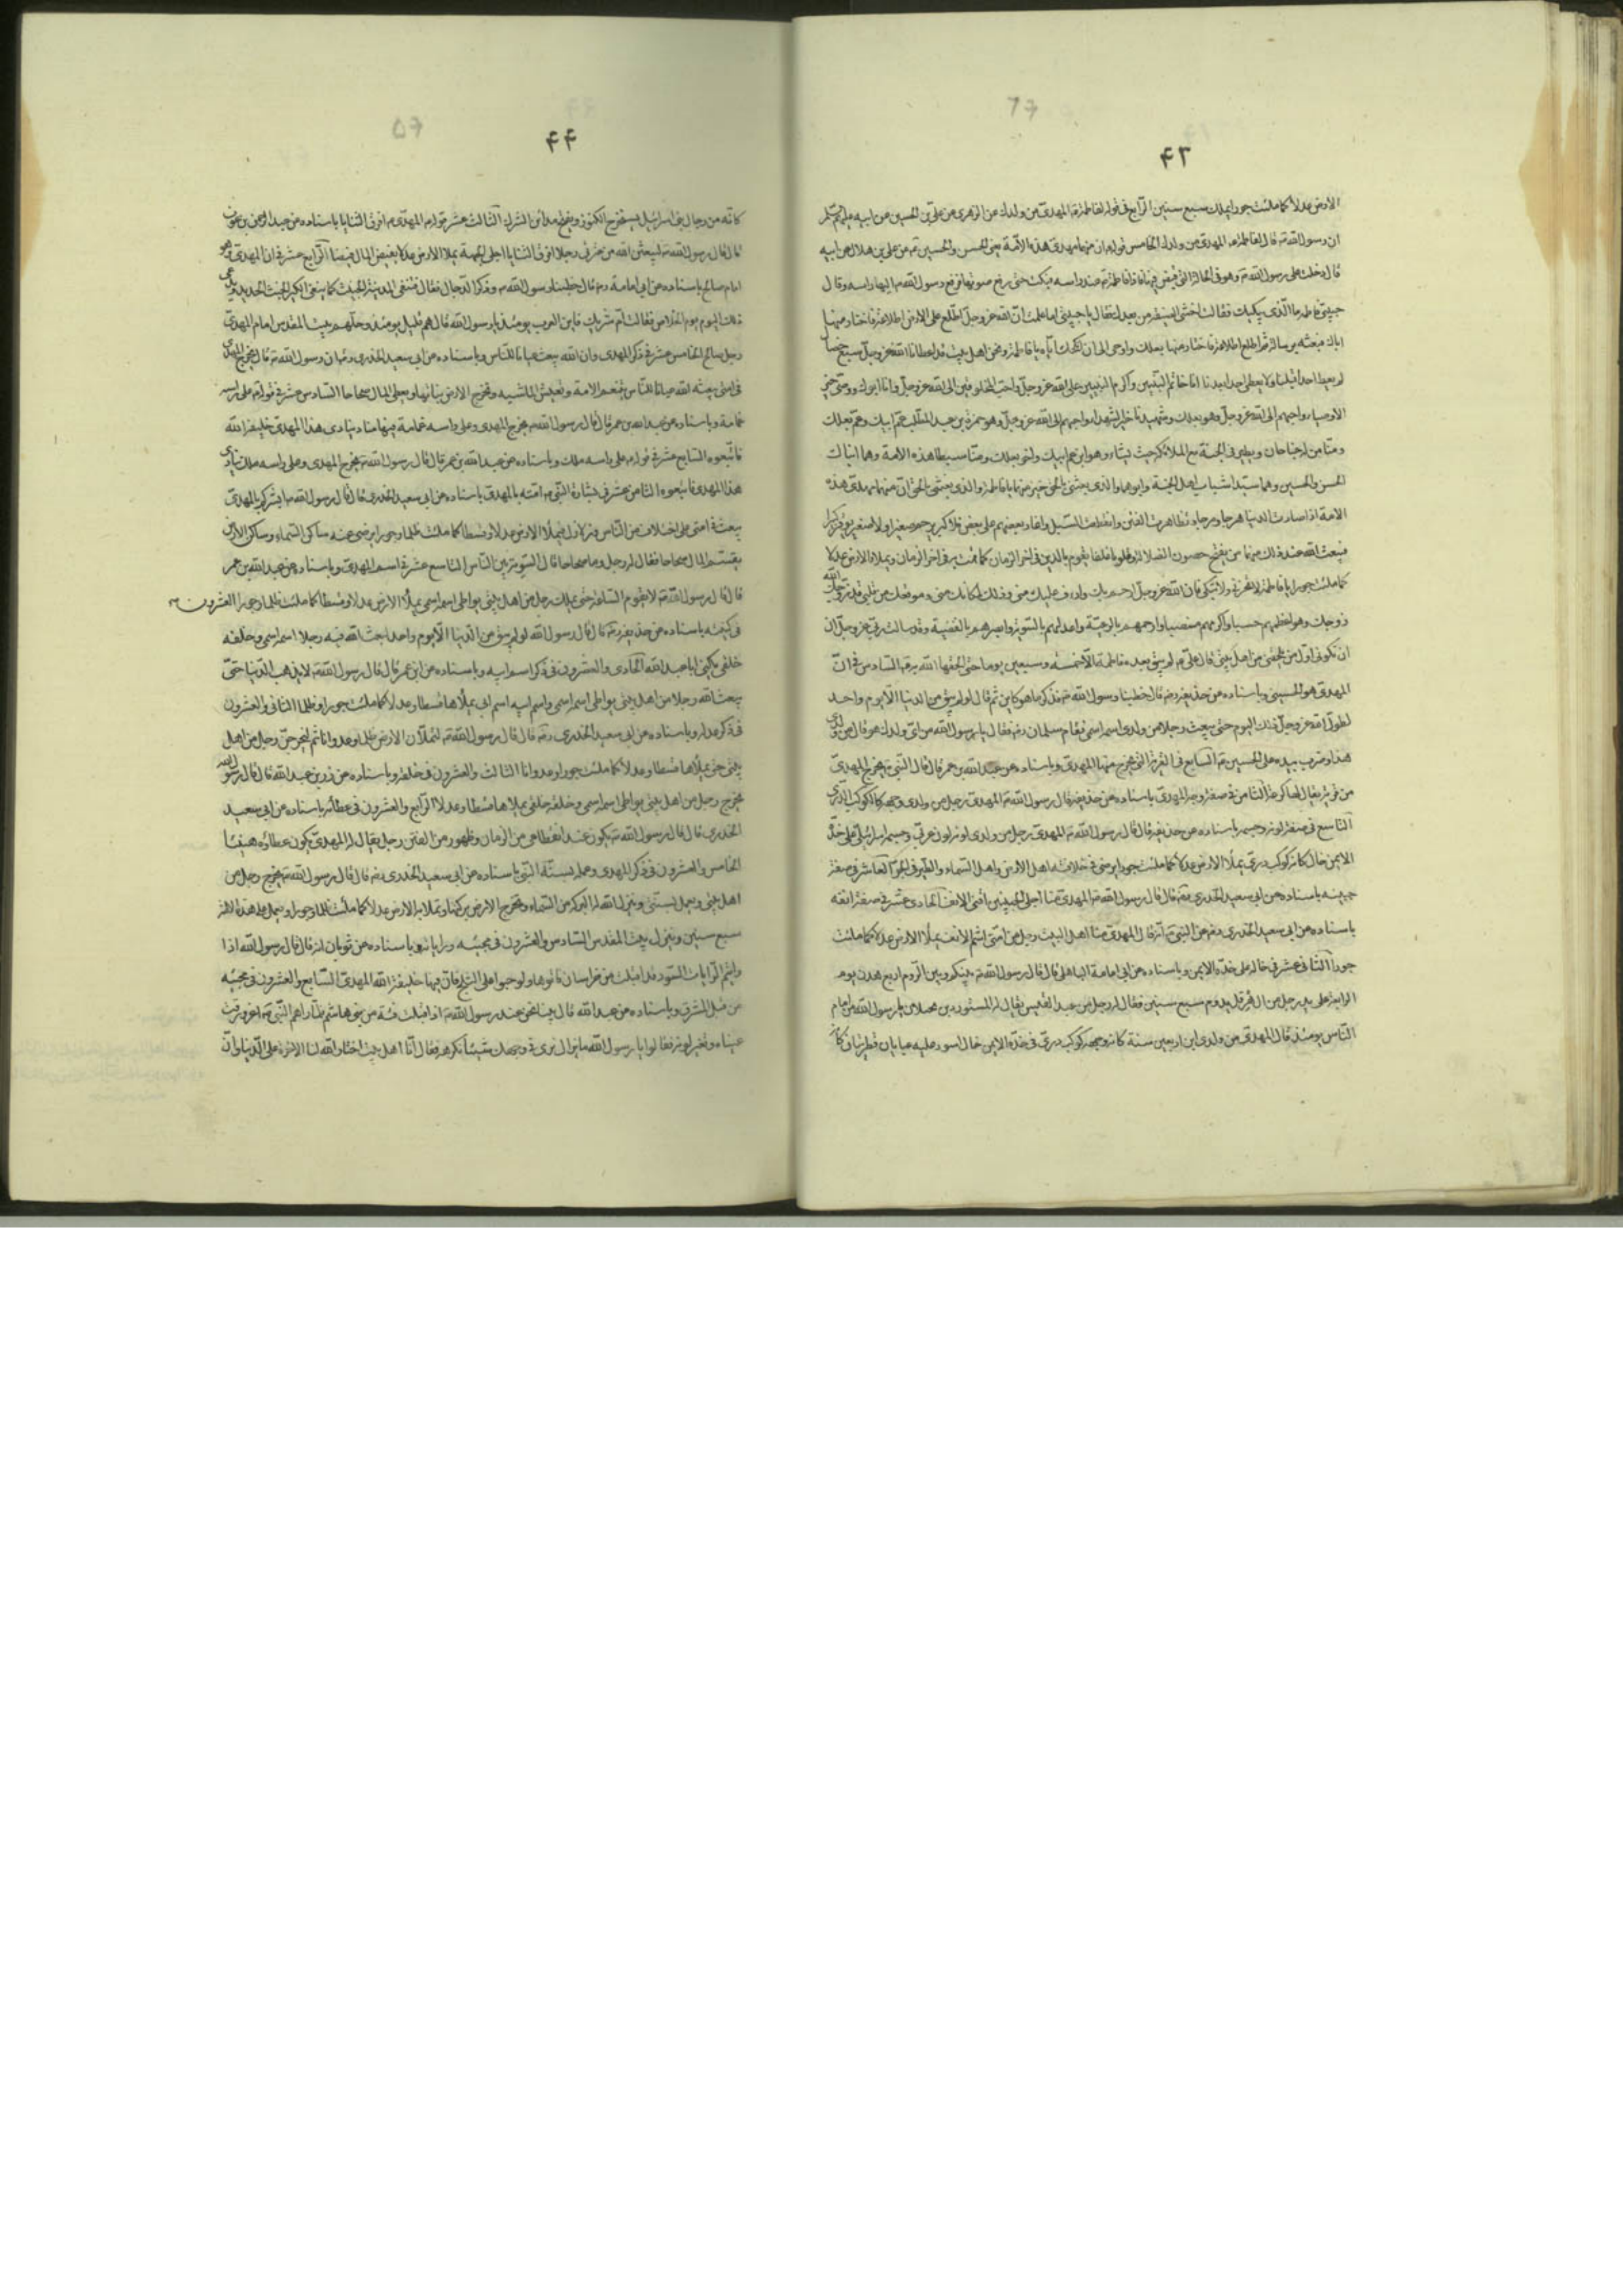 ۴۳
الارض عدلا كما ملئت جورا يملك سبع سنين الرابع في قوله لفاطمة المهدي من ولدك عن الزهري عن علي بن الحسين عن ابيه
ان رسول الله قال لفاطمة المهدي من ولدك الخامس قوله ان منهما مهدي هذه الامة يعني الحسن والحسين عن علي بن هلال عن ابيه
قال دخلت على رسول الله وهو في الحالة التي قبض فيها فاذا فاطمة عند راسه فبكت حتى رفع صوتها فرفع رسول الله اليها راسه وقال
حبيبتي فاطمة ما الذي يبكيك فقالت اخشى الضيعة من بعدك فقال يا حبيبتي اما علمت ان الله عز وجل اطلع على الارض اطلاعة فاختار منها
اباك فبعثه برسالته ثم اطلع اطلاعة فاختار منها بعلك واوحى الى ان انكحك اياه يا فاطمة ونحن اهل بيت قد اعطانا الله عز وجل سبع خصال
لم يعط احدا قبلنا ولا يعطي احدا بعدنا انا خاتم النبيين واكرم النبيين على الله عز وجل واحب المخلوقين الى الله عز وجل وانا ابوك ووصيي خير
الاوصياء واحبهم الى الله عز وجل وهو بعلك وشهيدنا خير الشهداء واحبهم الى الله عز وجل وهو حمزة بن عبد المطلب عم ابيك وعم بعلك
ومنا من له جناحان يطير في الجنة مع الملائكة حيث يشاء وهو ابن عم ابيك واخي بعلك ومنا سبطا هذه الامة وهما ابناك
الحسن والحسين وهما سيدا شباب اهل الجنة وابوهما والذي بعثني بالحق خير منهما يا فاطمة والذي بعثني بالحق ان منهما مهدي هذه
الامة اذا صارت الدنيا هرجا ومرجا وتظاهرت الفتن وانقطعت السبل واغار بعضهم على بعض فلا كبير يرحم صغيرا ولا صغير يوقر كبيرا
فيبعث الله عند ذلك منهما من يفتح حصون الضلالة وقلوبا غلفا يقوم بالدين في اخر الزمان كما قمت به في اخر الزمان ويملا الارض عدلا
كما ملئت جورا يا فاطمة لا تحزني ولا تبكي فان الله عز وجل ارحم بك واراف عليك مني وذلك لمكانك مني وموقعك من قلبي قد زوجك الله
زوجك وهو اعظمهم حسبا واكرمهم منصبا وارحمهم بالرعية واعدلهم بالسوية وابصرهم بالقضية وقد سالت ربي عز وجل ان
ان تكوني اول من يلحقني من اهل بيتي قال علي لم تبق بعده فاطمة الا خمسة وسبعين يوما حتى الحقها الله به السادس في ان
المهدي هو الحسيني وباسناده عن حذيفة قال خطبنا رسول الله فذكر ما هو كاين ثم قال لو لم يبق من الدنيا الا يوم واحد
لطول الله عز وجل ذلك اليوم حتى يبعث رجلا من ولدي اسمه اسمي فقام سلمان فقال يا رسول الله من اي ولدك هو قال من ولدي
هذا وضرب بيده على الحسين السابع في القرية التي يخرج منها المهدي وباسناده عن عبد الله بن عمر قال قال النبي يخرج المهدي
من قرية يقال لها كرعة الثامن في صفة وجه المهدي باسناده عن حذيفة قال رسول الله المهدي رجل من ولدي وجهه كالكوكب الدري
التاسع في صفة لونه وجسمه باسناده عن حذيفة قال قال رسول الله المهدي رجل من ولدي لونه لون عربي وجسمه اسرائيلي على خده
الايمن خال كانه كوكب دري يملا الارض عدلا كما ملئت جورا يرضى في خلافته اهل الارض واهل السماء والطير في الجو العاشر في صفة
جبينه باسناده عن ابي سعيد الخدري قال قال رسول الله المهدي منا اجلى الجبين اقنى الانف الحادي عشر في صفة انفه
باسناده عن ابي سعيد الخدري عن النبي انه قال المهدي منا اهل البيت رجل من امتي اشم الانف يملا الارض عدلا كما ملئت
جورا الثاني عشر في خاله على خده الايمن وباسناده عن ابي امامة الباهلي قال قال رسول الله بينكم وبين الروم اربع هدن يوم
الرابعة على يد رجل من ال هرقل يدوم سبع سنين فقال له رجل من عبد القيس يقال له المستورد بن يا رسول الله من امام
الناس يومئذ قال المهدي من ولدي ابن اربعين سنة كانه وجهه كوكب دري في خده الايمن خال اسود عليه عبايتان قطريتان
۴۴
كانه من رجال بني اسرائيل يستخرج الكنوز ويفتح مدائن الشرك الثالث عشر قوله المهدي افرق الثنايا باسناده عن عبد الرحمن بن عوف
قال قال رسول الله ليبعثن الله من عترتي رجلا افرق الثنايا اجلى الجبهة يملا الارض عدلا يفيض المال فيضا الرابع عشر في ان المهدي وهو
امام صالح باسناده عن ابي امامة قال خطبنا رسول الله وذكر الدجال فقال فتنفي المدينة الخبث كما ينفي الكير الخبث الحديد ويدعى
ذلك اليوم يوم الخلاص فقالت ام شريك فاين العرب يومئذ يا رسول الله قال هم قليل يومئذ وجلهم ببيت المقدس امامهم المهدي
رجل صالح الخامس عشر في ذكر المهدي وان الله يبعثه عيانا للناس وباسناده عن ابي سعيد الخدري ان رسول الله قال يخرج المهدي
في امتي يبعثه الله عيانا للناس يتنعم الامة وتعيش الماشية وتخرج الارض نباتها ويعطي المال صحاحا السادس عشر في قوله على راسه
غمامة وباسناده عن عبد الله بن عمر قال قال رسول الله يخرج المهدي وعلى راسه غمامة فيها مناد ينادي هذا المهدي خليفة الله
فاتبعوه السابع عشر في قوله على راسه ملك وباسناده عن عبد الله بن عمر قال قال رسول الله يخرج المهدي وعلى راسه ملك ينادي
هذا المهدي فاتبعوه الثامن عشر في بشارة النبي امته بالمهدي باسناده عن ابي سعيد الخدري قال قال رسول الله ابشركم بالمهدي
يبعث في امتي على اختلاف من الناس وزلازل فيملا الارض عدلا وقسطا كما ملئت ظلما وجورا يرضى عنه ساكن السماء وساكن الارض
يقسم المال صحاحا فقال له رجل وما صحاحا قال السوية بين الناس التاسع عشر في اسم المهدي وباسناده عن عبد الله بن عمر
قال قال رسول الله لا تقوم الساعة حتى يملك رجل من اهل بيتي يواطي اسمه اسمي يملا الارض عدلا وقسطا كما ملئت ظلما وجورا العشرون
في كنيته باسناده عن حذيفة قال قال رسول الله لو لم يبق من الدنيا الا يوم واحد لبعث الله فيه رجلا اسمه اسمي وخلقه
خلقي يكنى ابا عبد الله الحادي والعشرون في ذكر اسم ابيه وباسناده عن ابن عمر قال قال رسول الله لا يذهب الدنيا حتى
يبعث الله رجلا من اهل بيتي يواطي اسمه اسمي واسم ابيه اسم ابي يملأها قسطا وعدلا كما ملئت جورا وظلما الثاني والعشرون
في ذكر عدله وباسناده عن ابي سعيد الخدري قال قال رسول الله لتملان الارض ظلما وعدوانا ثم ليخرجن رجل من اهل
بيتي حتى يملأها قسطا وعدلا كما ملئت جورا وعدوانا الثالث والعشرون في خلقه وباسناده عن زر بن عبد الله قال قال رسول الله
يخرج رجل من اهل بيتي يواطي اسمه اسمي وخلقه خلقي يملاها قسطا وعدلا الرابع والعشرون في عطائه باسناده عن ابي سعيد
الخدري قال قال رسول الله يكون عند انقطاع من الزمان وظهور من الفتن رجل يقال له المهدي يكون عطاؤه هنيئا
الخامس والعشرون في ذكر المهدي وعمله بسنة النبي باسناده عن ابي سعيد الخدري قال قال رسول الله يخرج رجل من
اهل بيتي ويعمل بسنتي وينزل الله له البركة من السماء وتخرج الارض بركتها وتملا به الارض عدلا كما ملئت ظلما وجورا ويعمل على هذه الامة
سبع سنين وينزل بيت المقدس السادس والعشرون في مجيئه وراياته باسناده عن ثوبان انه قال قال رسول الله اذا
رايتم الرايات السود قد اقبلت من خراسان فاتوها ولو حبوا على الثلج فان فيها خليفة الله المهدي السابع والعشرون في مجيئه
من قبل المشرق وباسناده عن عبد الله قال بينا نحن عند رسول الله اذ اقبلت فتية من بني هاشم فلما راهم النبي اغرورقت
عيناه وتغير لونه فقالوا يا رسول الله ما نزال نرى في وجهك شيئا نكرهه فقال انا اهل بيت اختار الله لنا الاخرة على الدنيا وان